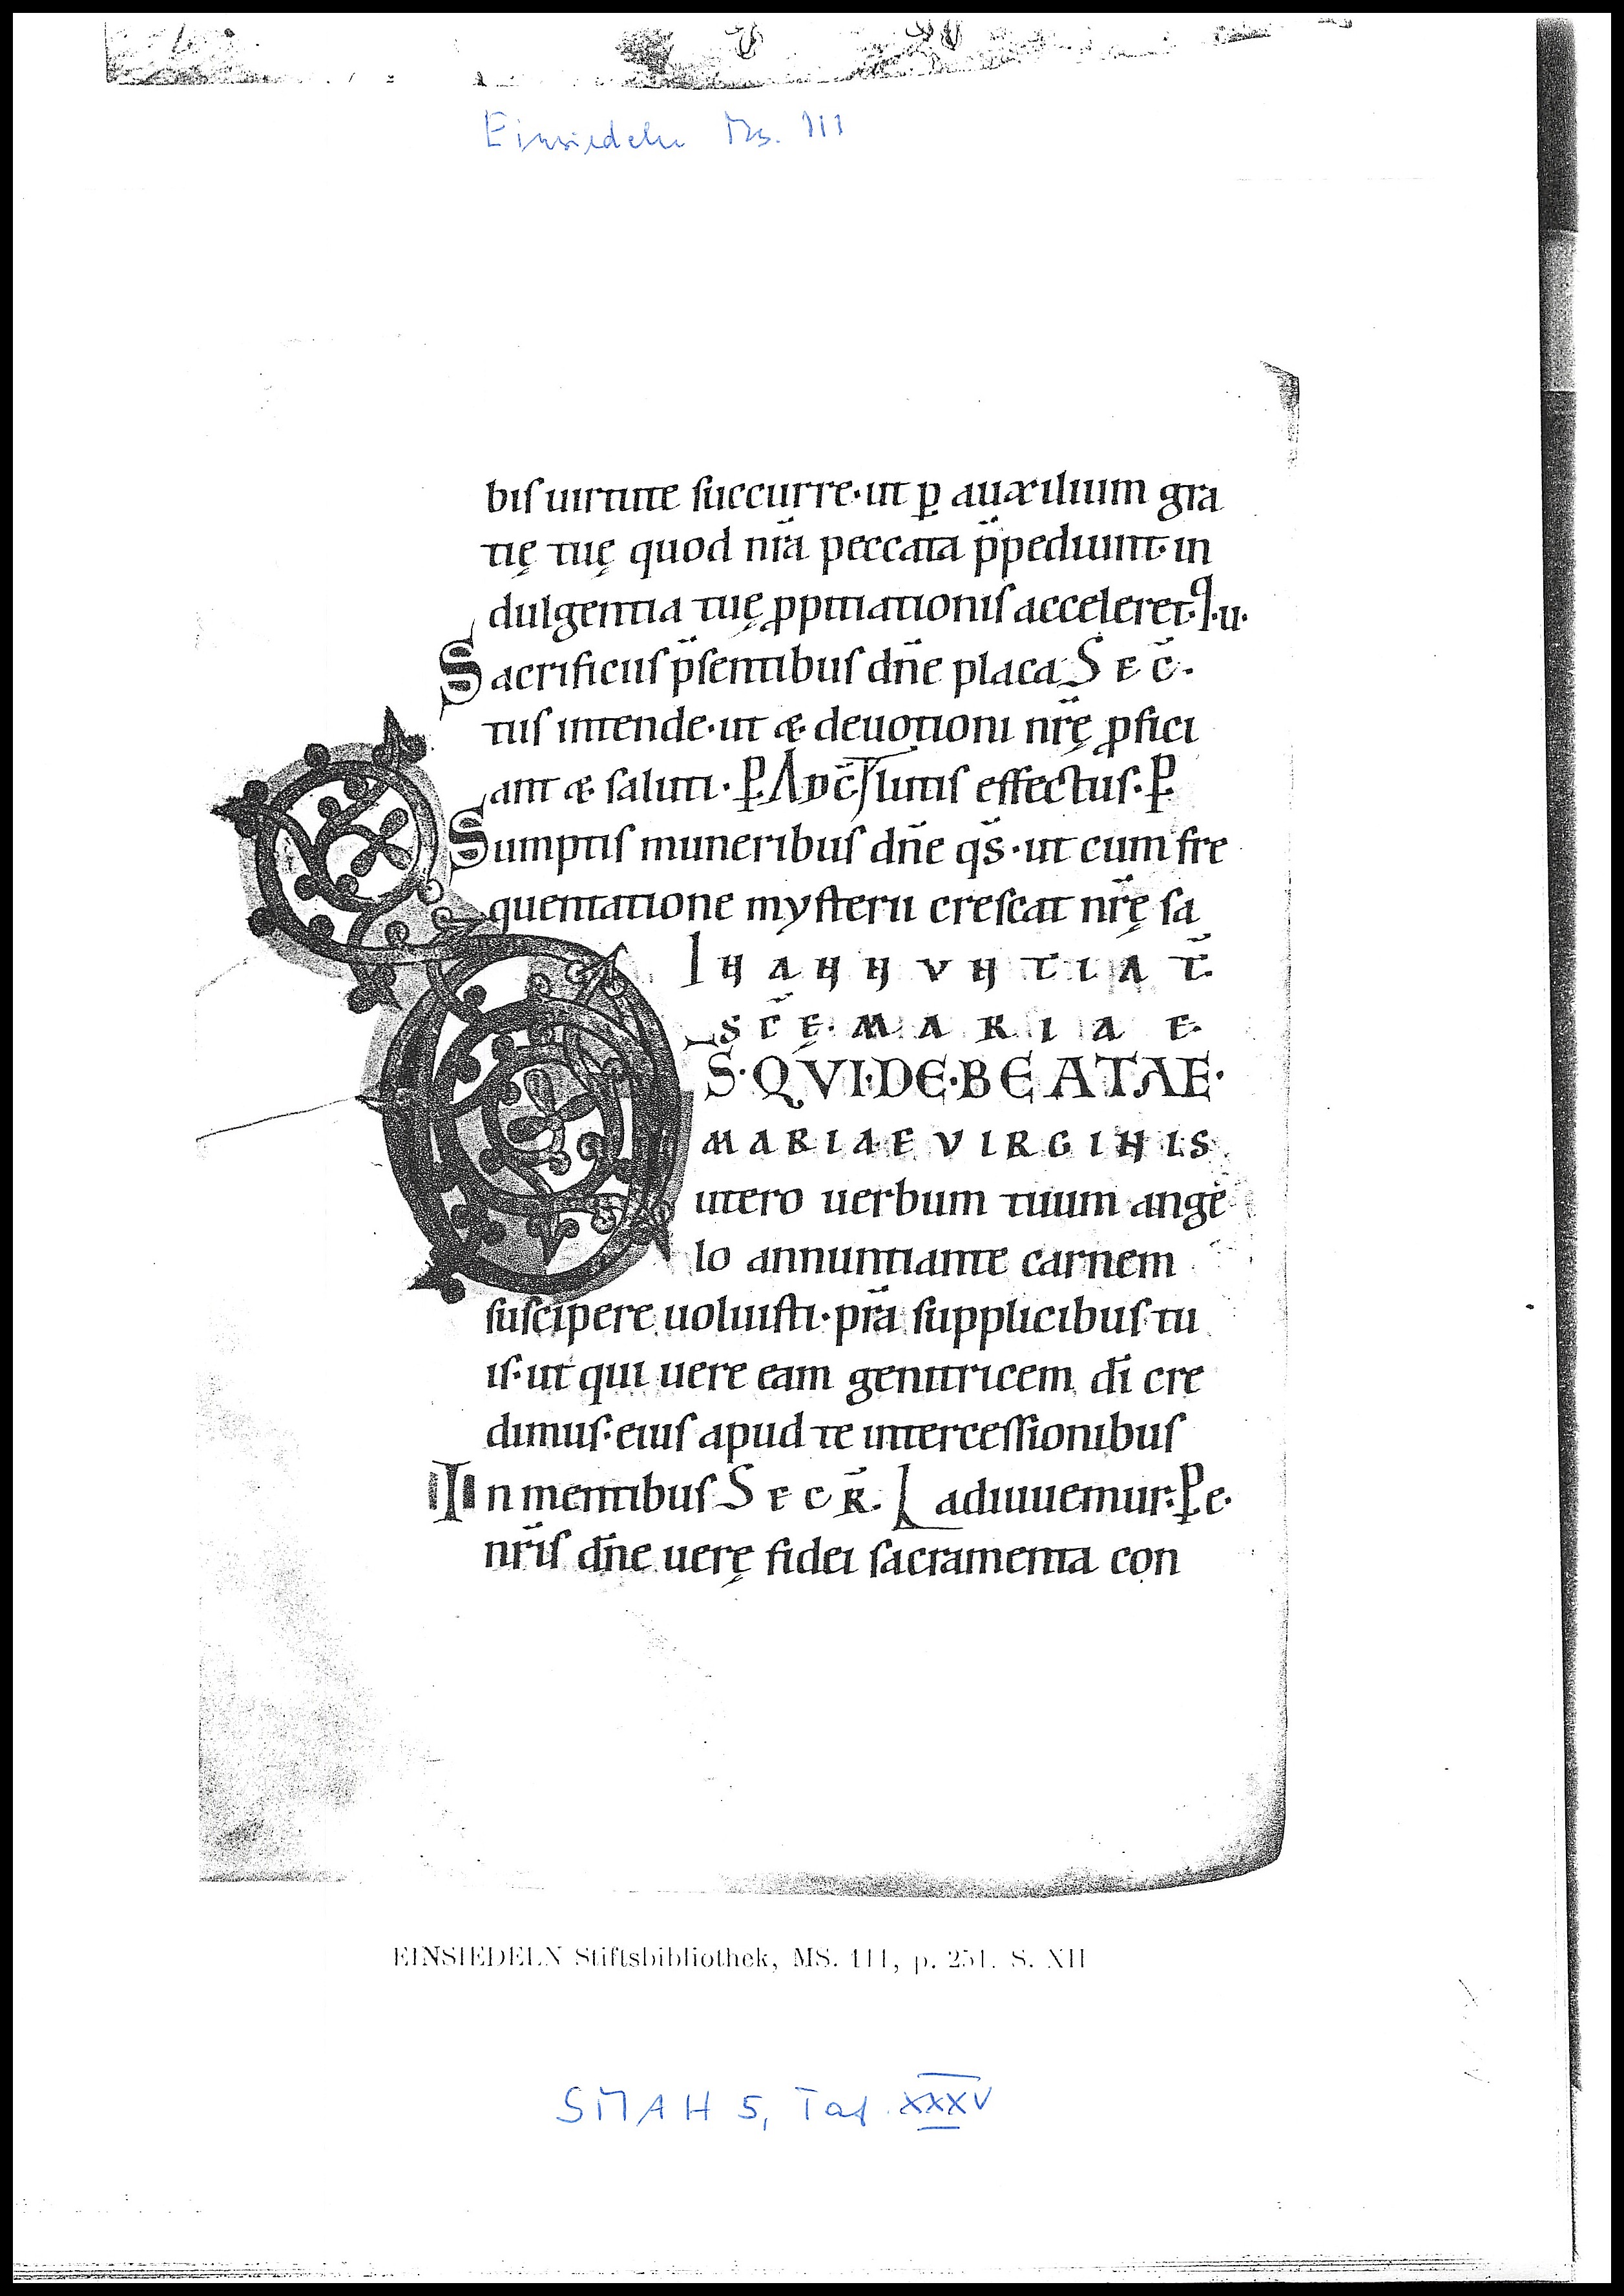 Einsiedeln Ms. 111
biſ uirtute ſuccurre· ut ꝑ auxilium gra
tię tuę quod nr̄a peccata p̄pediunt· in
dulgentia tuę ꝓpitiationiſ acceleret· Q·u·
Sacrificiiſ p̄ſentibuſ dn̄e placa S E C̄·
tuſ intende· ut & deuotioni nr̄ę ꝓfici
ant & ſaluti· P· AD C̄ lutiſ effectuſ· P·
Sumptiſ muneribuſ dn̄e qs̄· ut cum fre
quentatione myſterii creſcat nr̄ę ſa
IN ANNVNTIAT̄
SC̄E· MARIAE·
D S· QVI· DE· BEATAE·
MARIAE VIRGINIS
utero uerbum tuum ange
lo annuntiante carnem
ſuſcipere uoluiſti· pr̄a ſupplicibuſ tu
iſ· ut qui uere eam genitricem dī cre
dimuſ· eiuſ apud te interceſſionibuſ
In mentibuſ S E C R̄· adiuuemur· P e·
nr̄iſ dn̄e uerę fidei ſacramenta con
EINSIEDELN Stiftsbibliothek, MS. 111, p. 251. S. XII
SMAH 5, Taf. XXXV